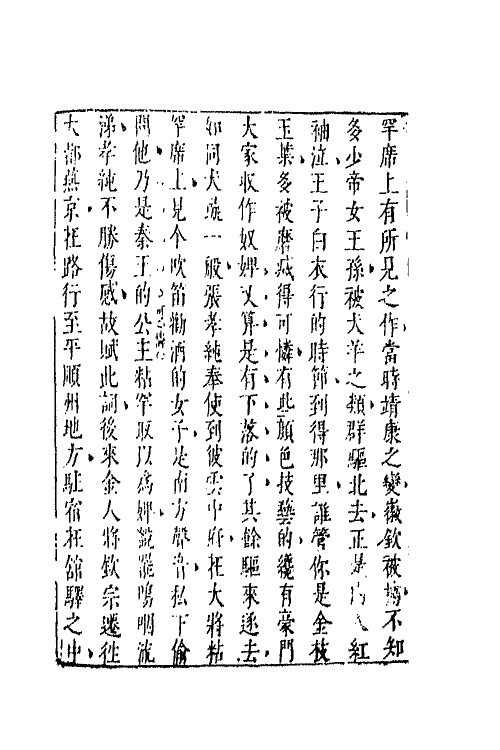 罕席上有所見之作當時靖康之變徽欽被擄不知
多少帝女王孫被犬羊之類群驅北去正是內人紅
袖泣王子白衣行的時節到得那里誰管你是金枝
玉葉多被磨滅得可憐有些顏色技藝的纔有豪門
大家收作奴婢又算是有下落的了其餘驅來逐去
如同犬彘一般張孝純奉使到彼雲中府在大將粘
罕席上見个吹笛勸酒的女子是南方聲音私下偷
問他乃是秦王的公主粘罕取以為婢說罷嗚咽流
涕孝純不勝傷感故賦此詞後來金人將欽宗遷往
大都燕京在路行至平順州地方駐宿在舘驛之中